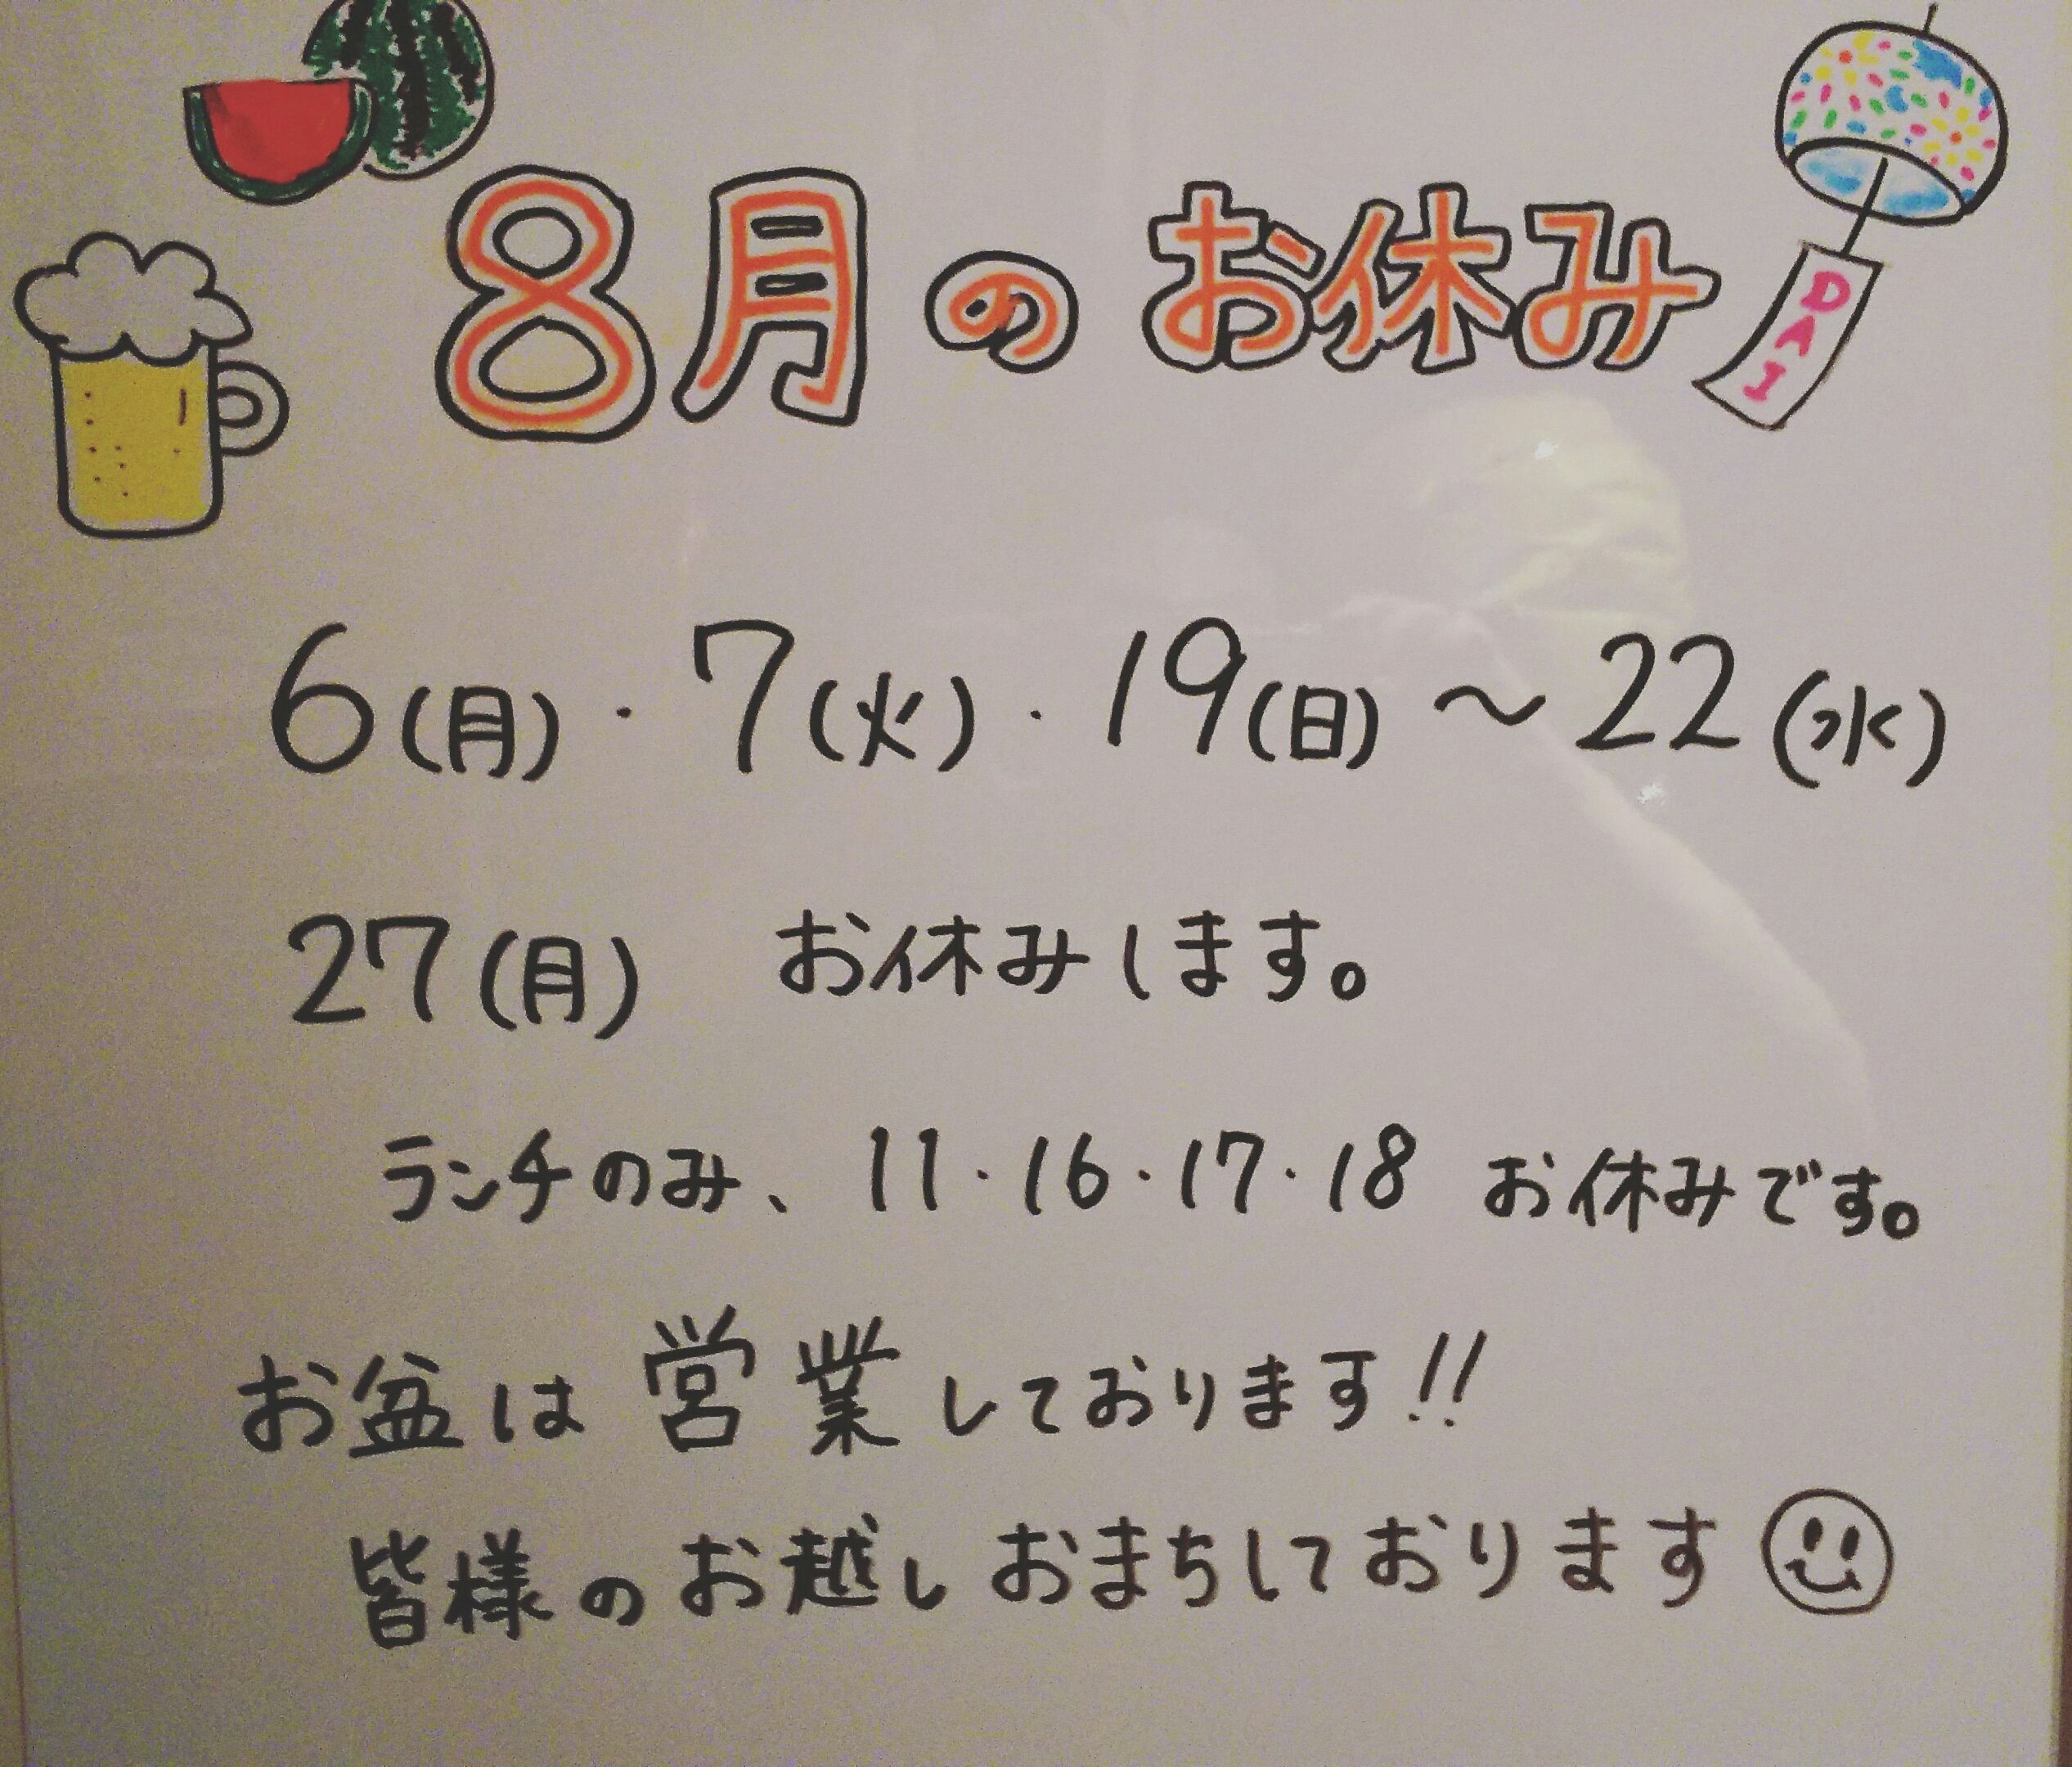 8月のお休み
DAI
6(月)・7(火)・19(日)～22(水)
27(月) お休みします。
ランチのみ、11・16・17・18 お休みです。
お盆は営業しております!!
皆様のお越しおまちしております